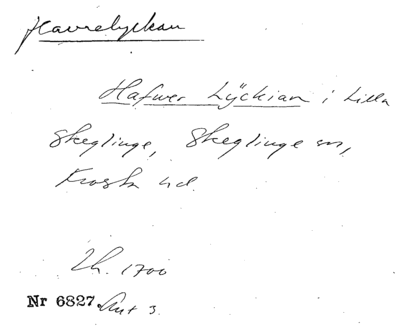 Havrelyckan
Hafwer Lÿckian i Lilla
Skeglinge, Skeglinge sn,
Frosta hd.
Lh. 1700
Nr 6827. Ant 3.